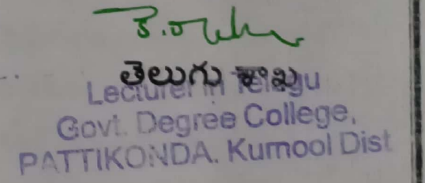 తెలుగు శాఖ
Lecturer in Telugu
Govt. Degree College,
PATTIKONDA. Kurnool Dist